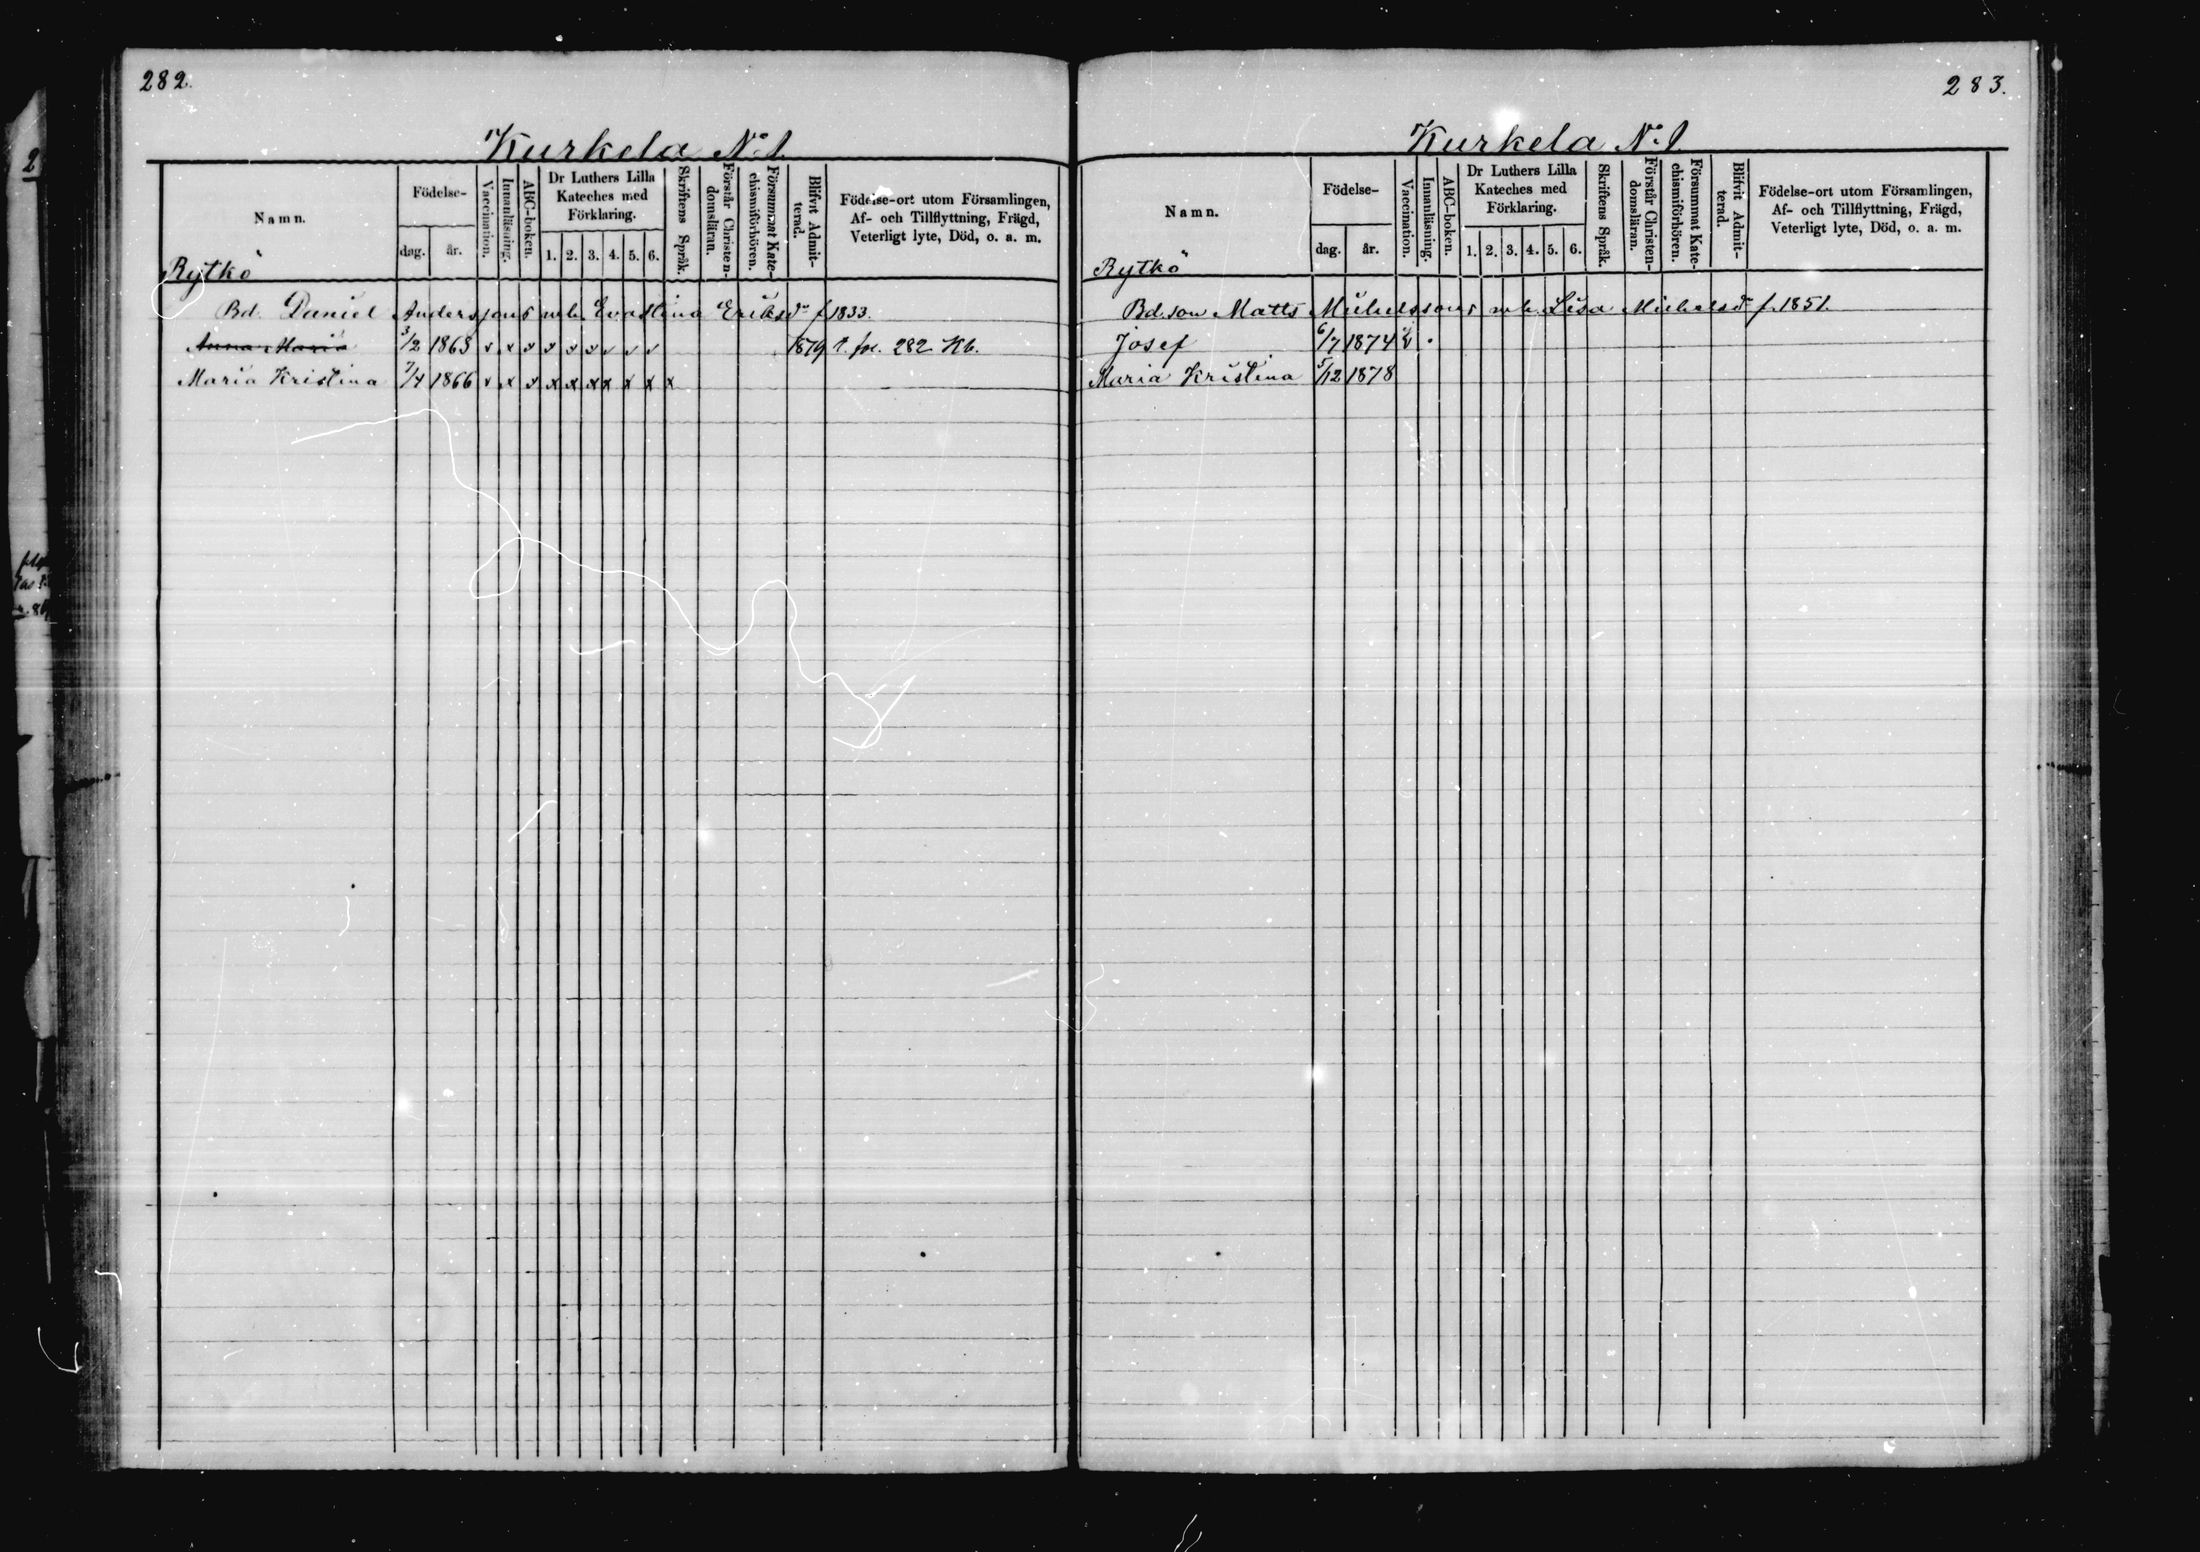 282.
Kurkela N:o 1.
Namn.
Födelse-
dag.
år.
Vaccination.
Innanläsning.
ABC-boken.
Dr Luthers Lilla Kateches med Förklaring.
1. 2. 3. 4. 5. 6.
Skriftens Språk.
Förstår Christen-domsläran.
Försummat Kate-chismiförhören.
Blifvit Admit-terad.
Födelse-ort utom Församlingen,
Af- och Tillflyttning, Frägd,
Veterligt lyte, Död, o. a. m.
Rytkö
Bd. Daniel Anderssons m. h. Evastina Eriksdr f 1833.
Anna Maria 3/2 1863 v x v v v v v v v 1879 t. fol. 282 Kb.
Maria Kristina 7/4 1866 v x v x x x x x x x
283.
Kurkela N:o 1
Namn.
Födelse-
dag.
år.
Vaccination.
Innanläsning.
ABC-boken.
Dr Luthers Lilla Kateches med Förklaring.
1. 2. 3. 4. 5. 6.
Skriftens Språk.
Förstår Christen-domsläran.
Försummat Kate-chismiförhören.
Blifvit Admit-terad.
Födelse-ort utom Församlingen,
Af- och Tillflyttning, Frägd,
Veterligt lyte, Död, o. a. m.
Rytkö
Bd. son Matts Michelssons m. h. Lisa Michelsdr f. 1851.
Josef 6/7 1874 v
Maria Kristina 5/12 1878